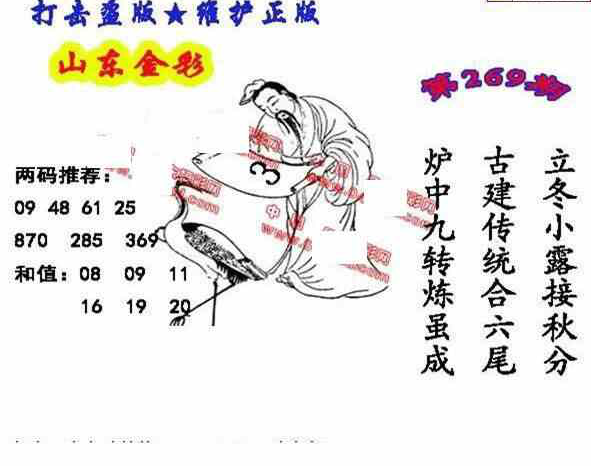 打击盗版★维护正版
山东金彩
第269期
两码推荐：
09 48 61 25
870 285 369
和值：08 09 11
16 19 20
3
立冬小露接秋分
古建传统合六尾
炉中九转炼虽成